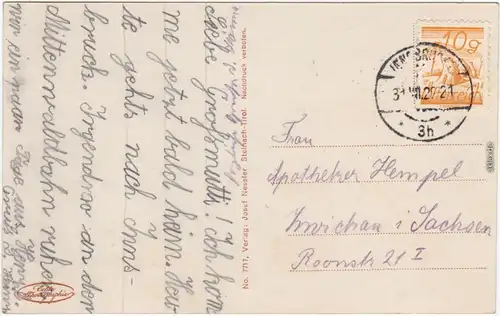 Liebe Großmutti! Ich kom
me jetzt bald heim. Heu
te gehts nach Inns-
bruck. Irgendwo an der
Mittenwaldbahn ruhen
wir ein paar Tage aus.
No. 7717, Verlag: Josef Nessler Steinach-Tirol. Nachdruck verboten.
Echte
Photographie
10 g
INNSBRUCK
3h
Frau
Apotheker Hempel
Zwickau i Sachsen
Roonstr 21 I